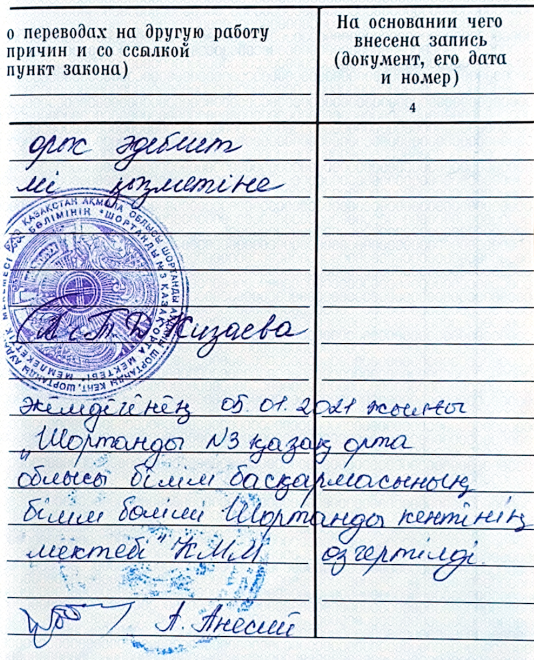 о переводах на другую работу
причин и со ссылкой
пункт закона)
На основании чего
внесена запись
(документ, его дата
и номер)
4
орыс әдебиет
мі қызметіне
Т. Д. Жизаева
әкімдігінің 05.01.2021 жылғы
"Шортанды N3 қазақ орта
облысы білім басқармасының
білім бөлімі Шортанды кентінің
мектебі" КММ өзгертілді.
А. Әнесиń